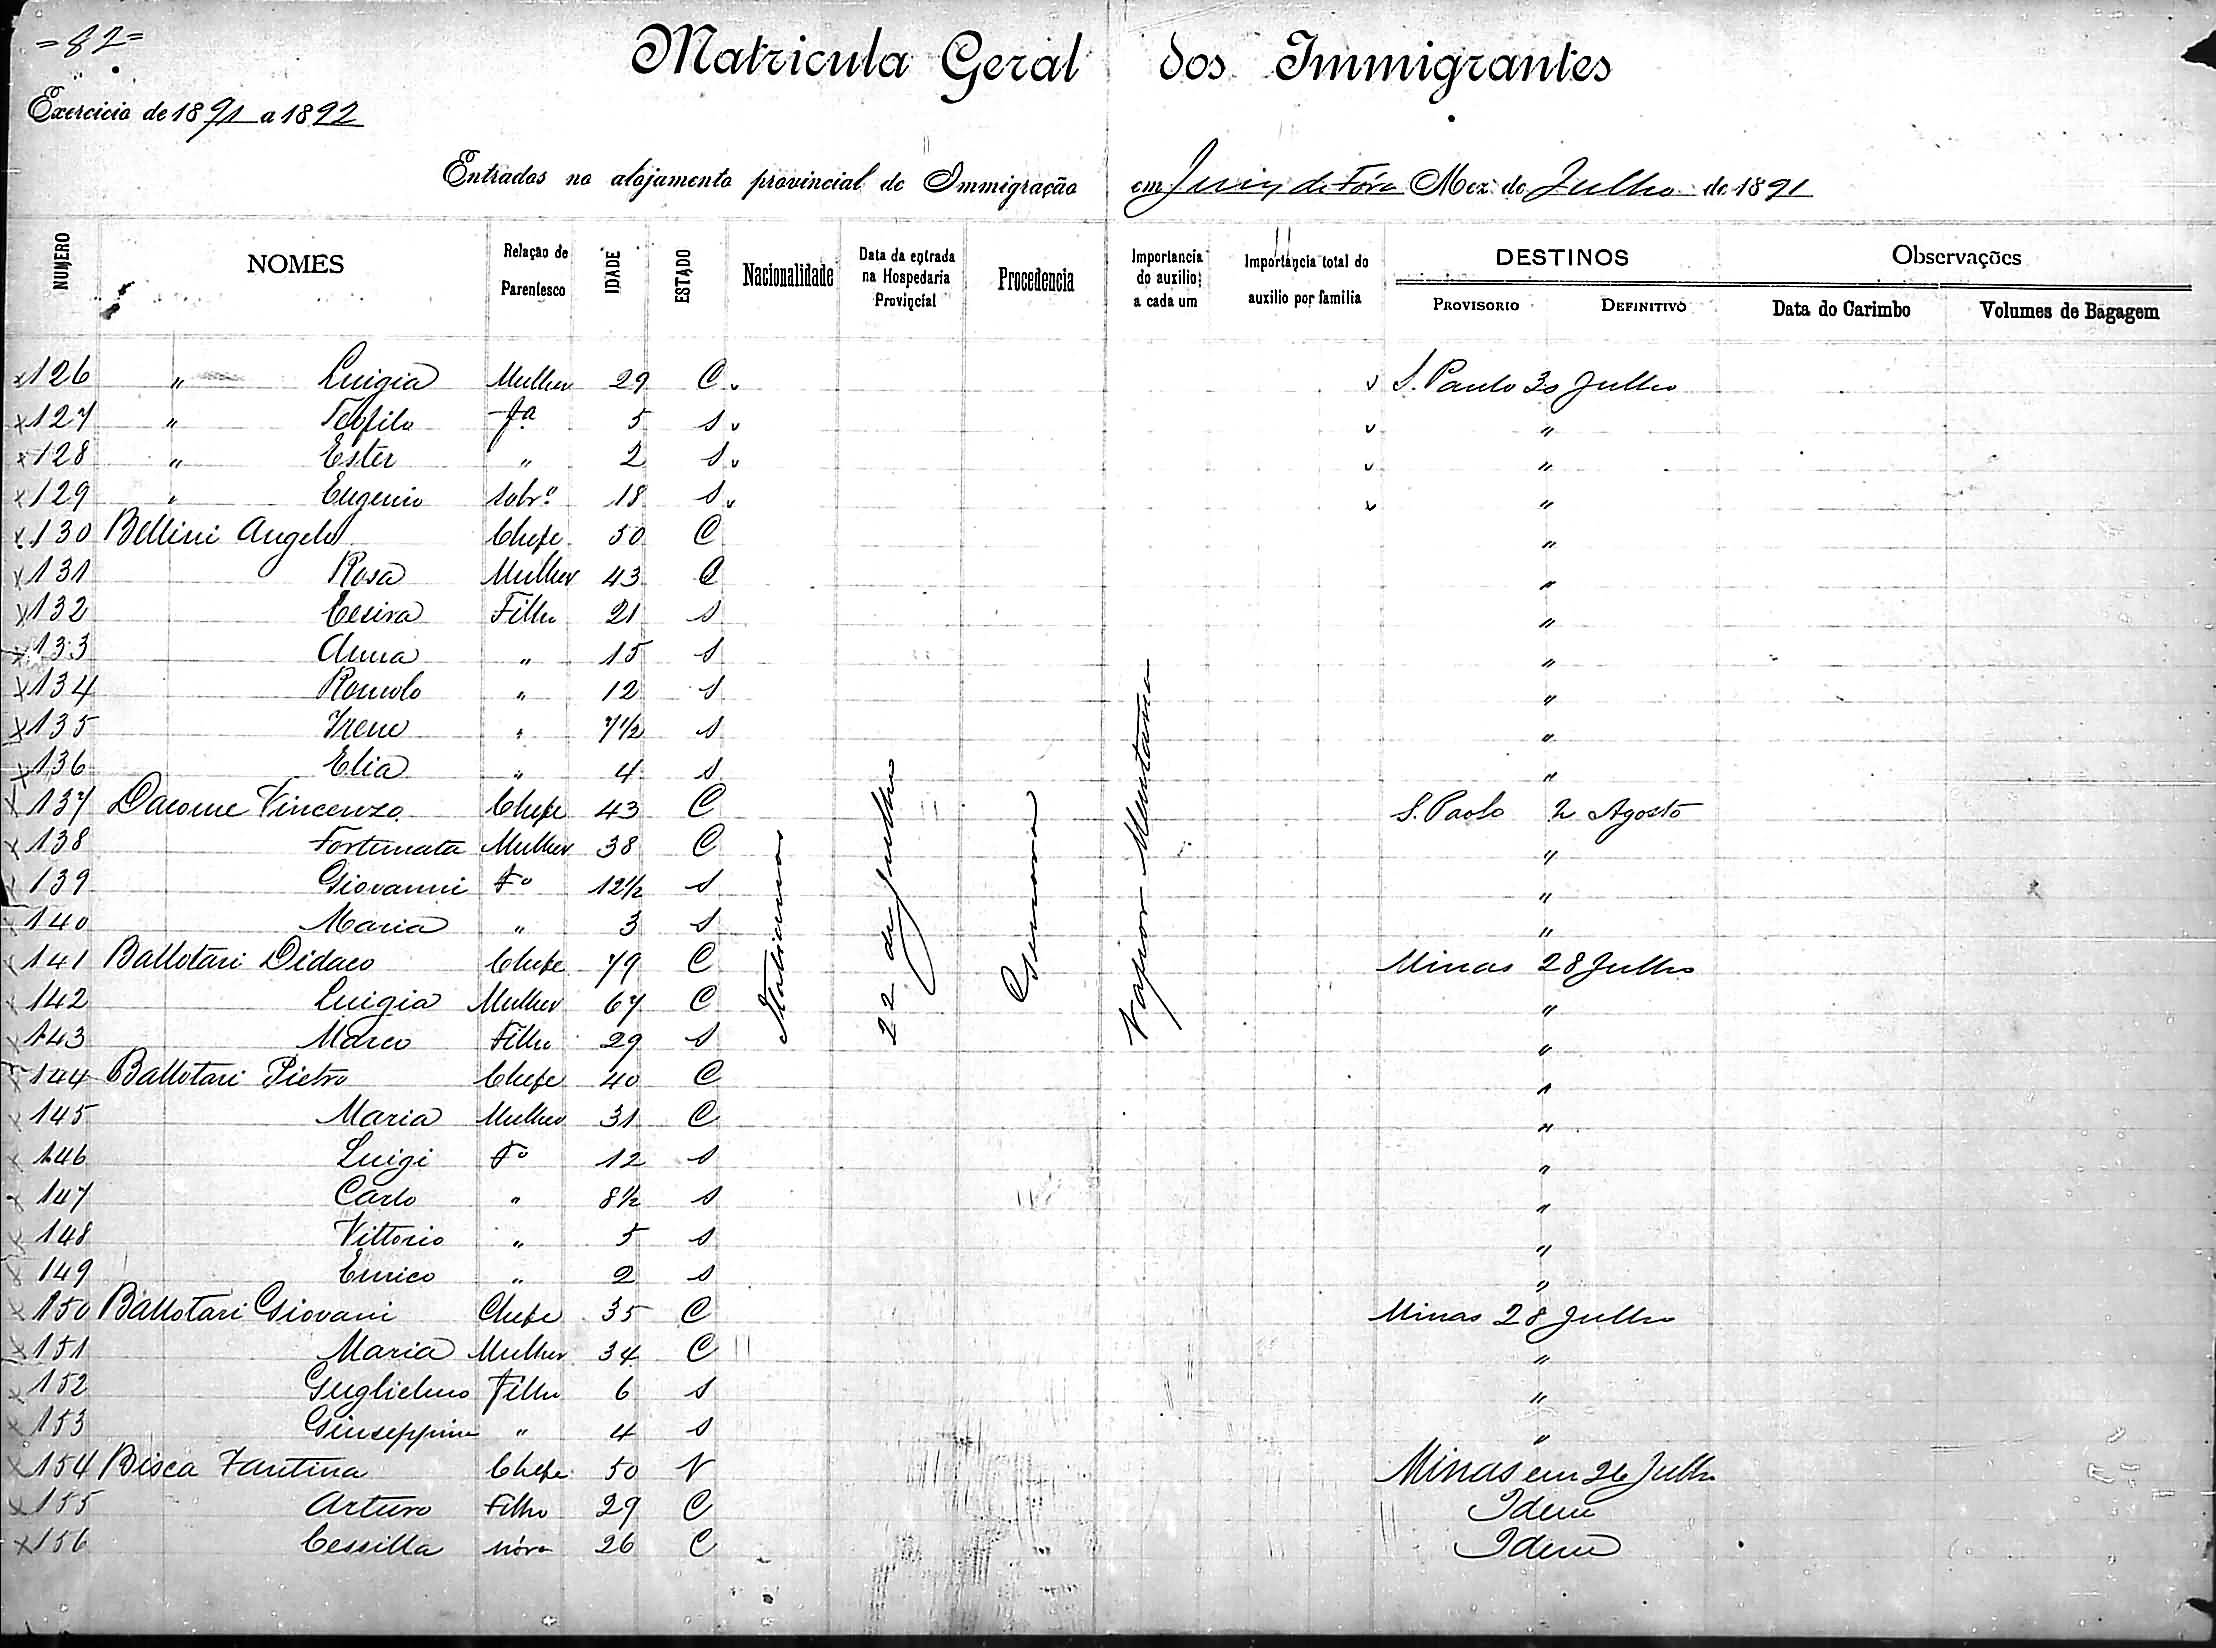 =82=
Matricula Geral dos Immigrantes
Exercicio de 1891 a 1892
Entrados no alojamento provincial de Immigração em Juiz de Fóra Mez de Julho de 1891
NUMERO NOMES Relação de Parentesco IDADE ESTADO Nacionalidade Data da entrada na Hospedaria Provincial Procedencia Importancia do auxilio a cada um Importancia total do auxilio por familia DESTINOS Observações
PROVISORIO DEFINITIVO Data do Carimbo Volumes de Bagagem
x 126 " Luigia Mulher 29 C v v S. Paulo 30 Julho
x 127 " Teofila fa 5 S v v "
x 128 " Ester " 2 S v v "
x 129 " Eugenio sobrº 18 S v v "
x 130 Bellini Angelo Chefe 50 C "
x 131 Rosa Mulher 43 C "
x 132 Cesira Filha 21 S "
x 133 Anna " 15 S "
x 134 Romolo " 12 S "
x 135 Irene " 7 1/2 S "
x 136 Elia " 4 S "
x 137 Dacome Vincenzo Chefe 43 C S. Paolo 2 Agosto
x 138 Fortunata Mulher 38 C "
x 139 Giovanni Fº 12 1/2 S "
x 140 Maria " 3 S "
x 141 Ballotari Didaco Chefe 79 C Minas 28 Julho
x 142 Luigia Mulher 67 C "
x 143 Marco Filho 29 S "
x 144 Ballotari Pietro Chefe 40 C "
x 145 Maria Mulher 31 C "
x 146 Luigi Fº 12 S "
x 147 Carlo " 8 1/2 S "
x 148 Vittorio " 5 S "
x 149 Enrico " 2 S "
x 150 Ballotari Giovani Chefe 35 C Minas 28 Julho
x 151 Maria Mulher 34 C "
x 152 Guglielmo Filho 6 S "
x 153 Giuseppina " 4 S "
x 154 Bisca Fantina Chefe 50 V Minas em 26 Julho
x 155 Arturo Filho 29 C Idem
x 156 Cessilla nóra 26 C Idem
Italianos
22 de Julho
Genova
Vapor Mentana